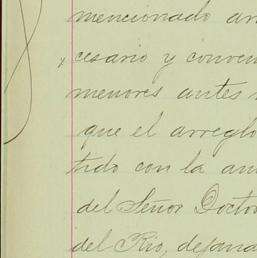 mencionado
cesario y conven
menores antes
que el arreglo
tido con la
del Señor Doctor
del Rio, dejand